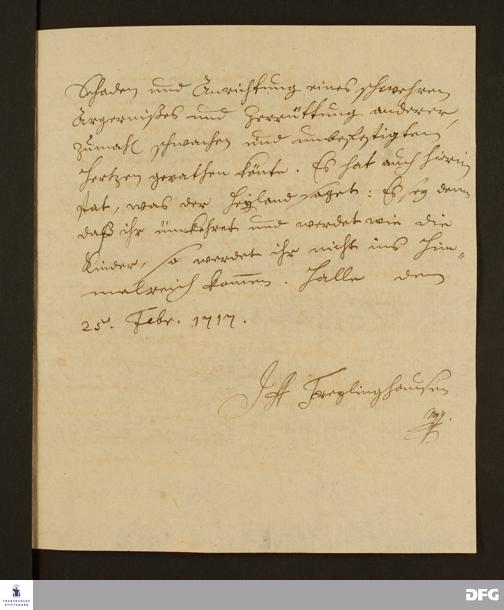 Schaden und Anrichtung eines schwehren
Ärgernißes und Zerrüttung anderer,
zumahl schwachen und unbefestigten
Hertzen gerathen könte. Es hat auch hierin
stat, was der Heyland saget: Es sey denn
daß ihr ümkehret und werdet wie die
Kinder, so werdet ihr nicht ins Him-
melreich kommen. Halle den
25. Febr. 1717.
Freylinghausen
FRANCKESCHE
STIFTUNGEN
DFG